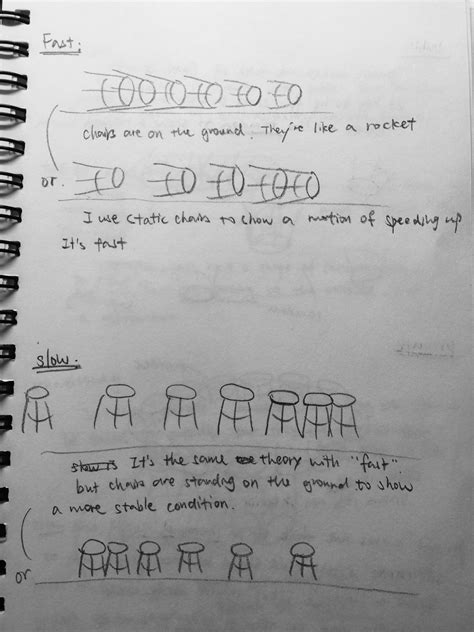 Fast:
chairs are on the ground. They're like a rocket
or.
I use static chairs to show a motion of speeding up
It's fast
slow:
slow is It's the same theory with "fast".
but chairs are standing on the ground to show
a more stable condition.
or